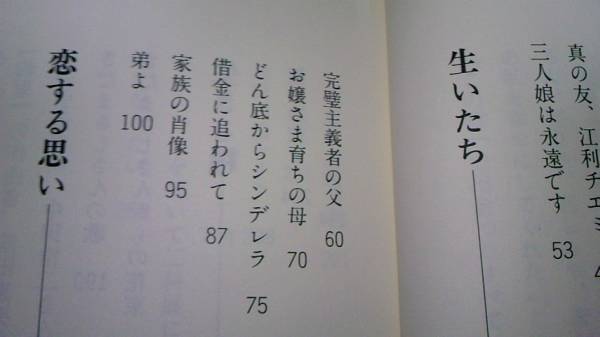 真の友、江利チエミ
三人娘は永遠です 53
生いたち
完璧主義者の父 60
お嬢さま育ちの母 70
どん底からシンデレラ 75
借金に追われて 87
家族の肖像 95
弟よ 100
恋する思い